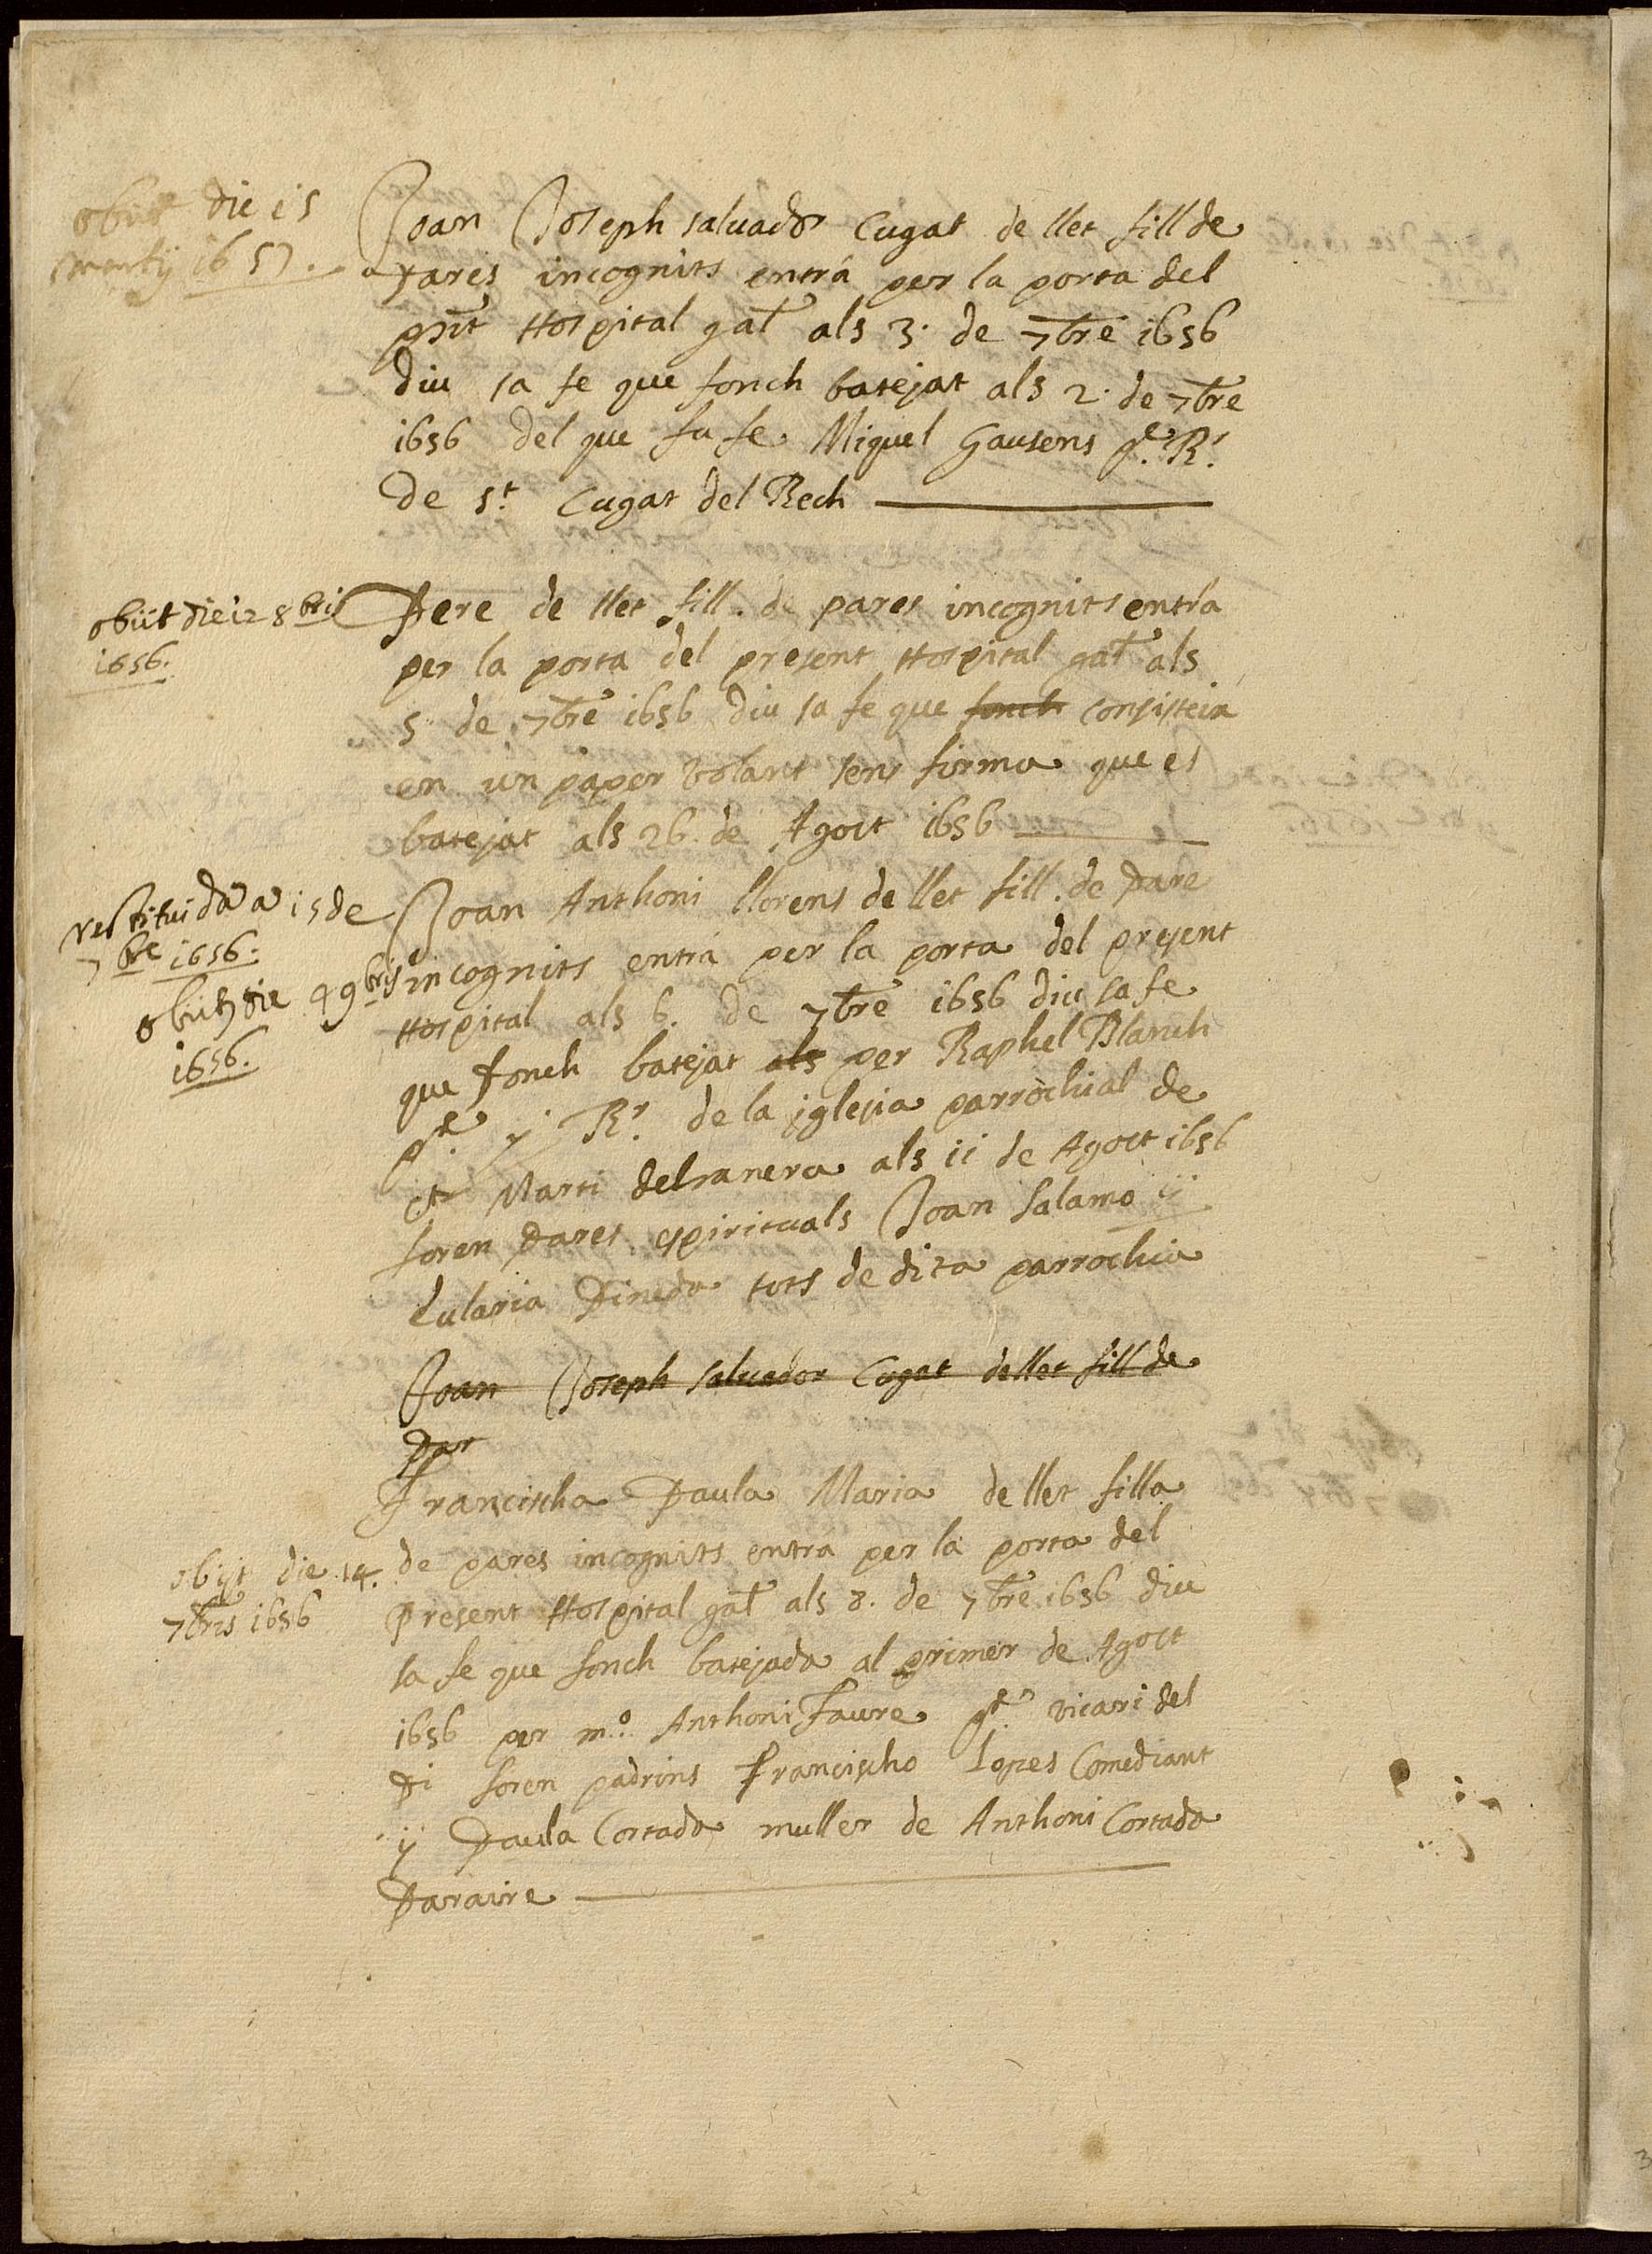 obiit die 15
martij 1657.
Joan Joseph saluador Cugat de llet fill de
Pares incognits entrá per la porta del
pnt Hospital gāl als 3. de 7bre 1656
diu sa fe que fonch batejat als 2. de 7bre
1656 del que fa fe Miquel Gausens pe. Rr.
de st. Cugat del Rech
obiit die 12 8bris
1656.
Pere de llet fill. de pares incognits entrá
per la porta del present Hospital gāl als
5 de 7bre 1656 diu sa fe que fonch consisteix
en un paper volant sens firma que es
batejat als 26. de Agost 1656
restituida a 15 de
7bre 1656.
obiit die 4 9bris
1656.
Joan Anthoni llorens de llet fill. de Pare
incognits entrá per la porta del present
Hospital als 6. de 7bre 1656 diu sa fe
que fonch batejat als per Raphel Blanch
pe. y Rr. de la jglesia parrochial de
st Marti als 11 de Agost 1656
foren Pares espirituals Joan Salamo y
Eularia Pineda tots de dita parrochia
Joan Joseph saluador Cugat de llet fill de
Par
Francischa Paula Maria de llet filla
obijt die 14.
7bris 1656
de pares incognits entrá per la porta del
Present Hospital gāl als 8. de 7bre 1656 diu
sa fe que fonch batejada al primer de Agost
1656 per mo. Anthoni Faure pe. vicari del
Pi foren padrins Francischo Lopes Comediant
y Paula Cortada muller de Anthoni Cortada
Paraire